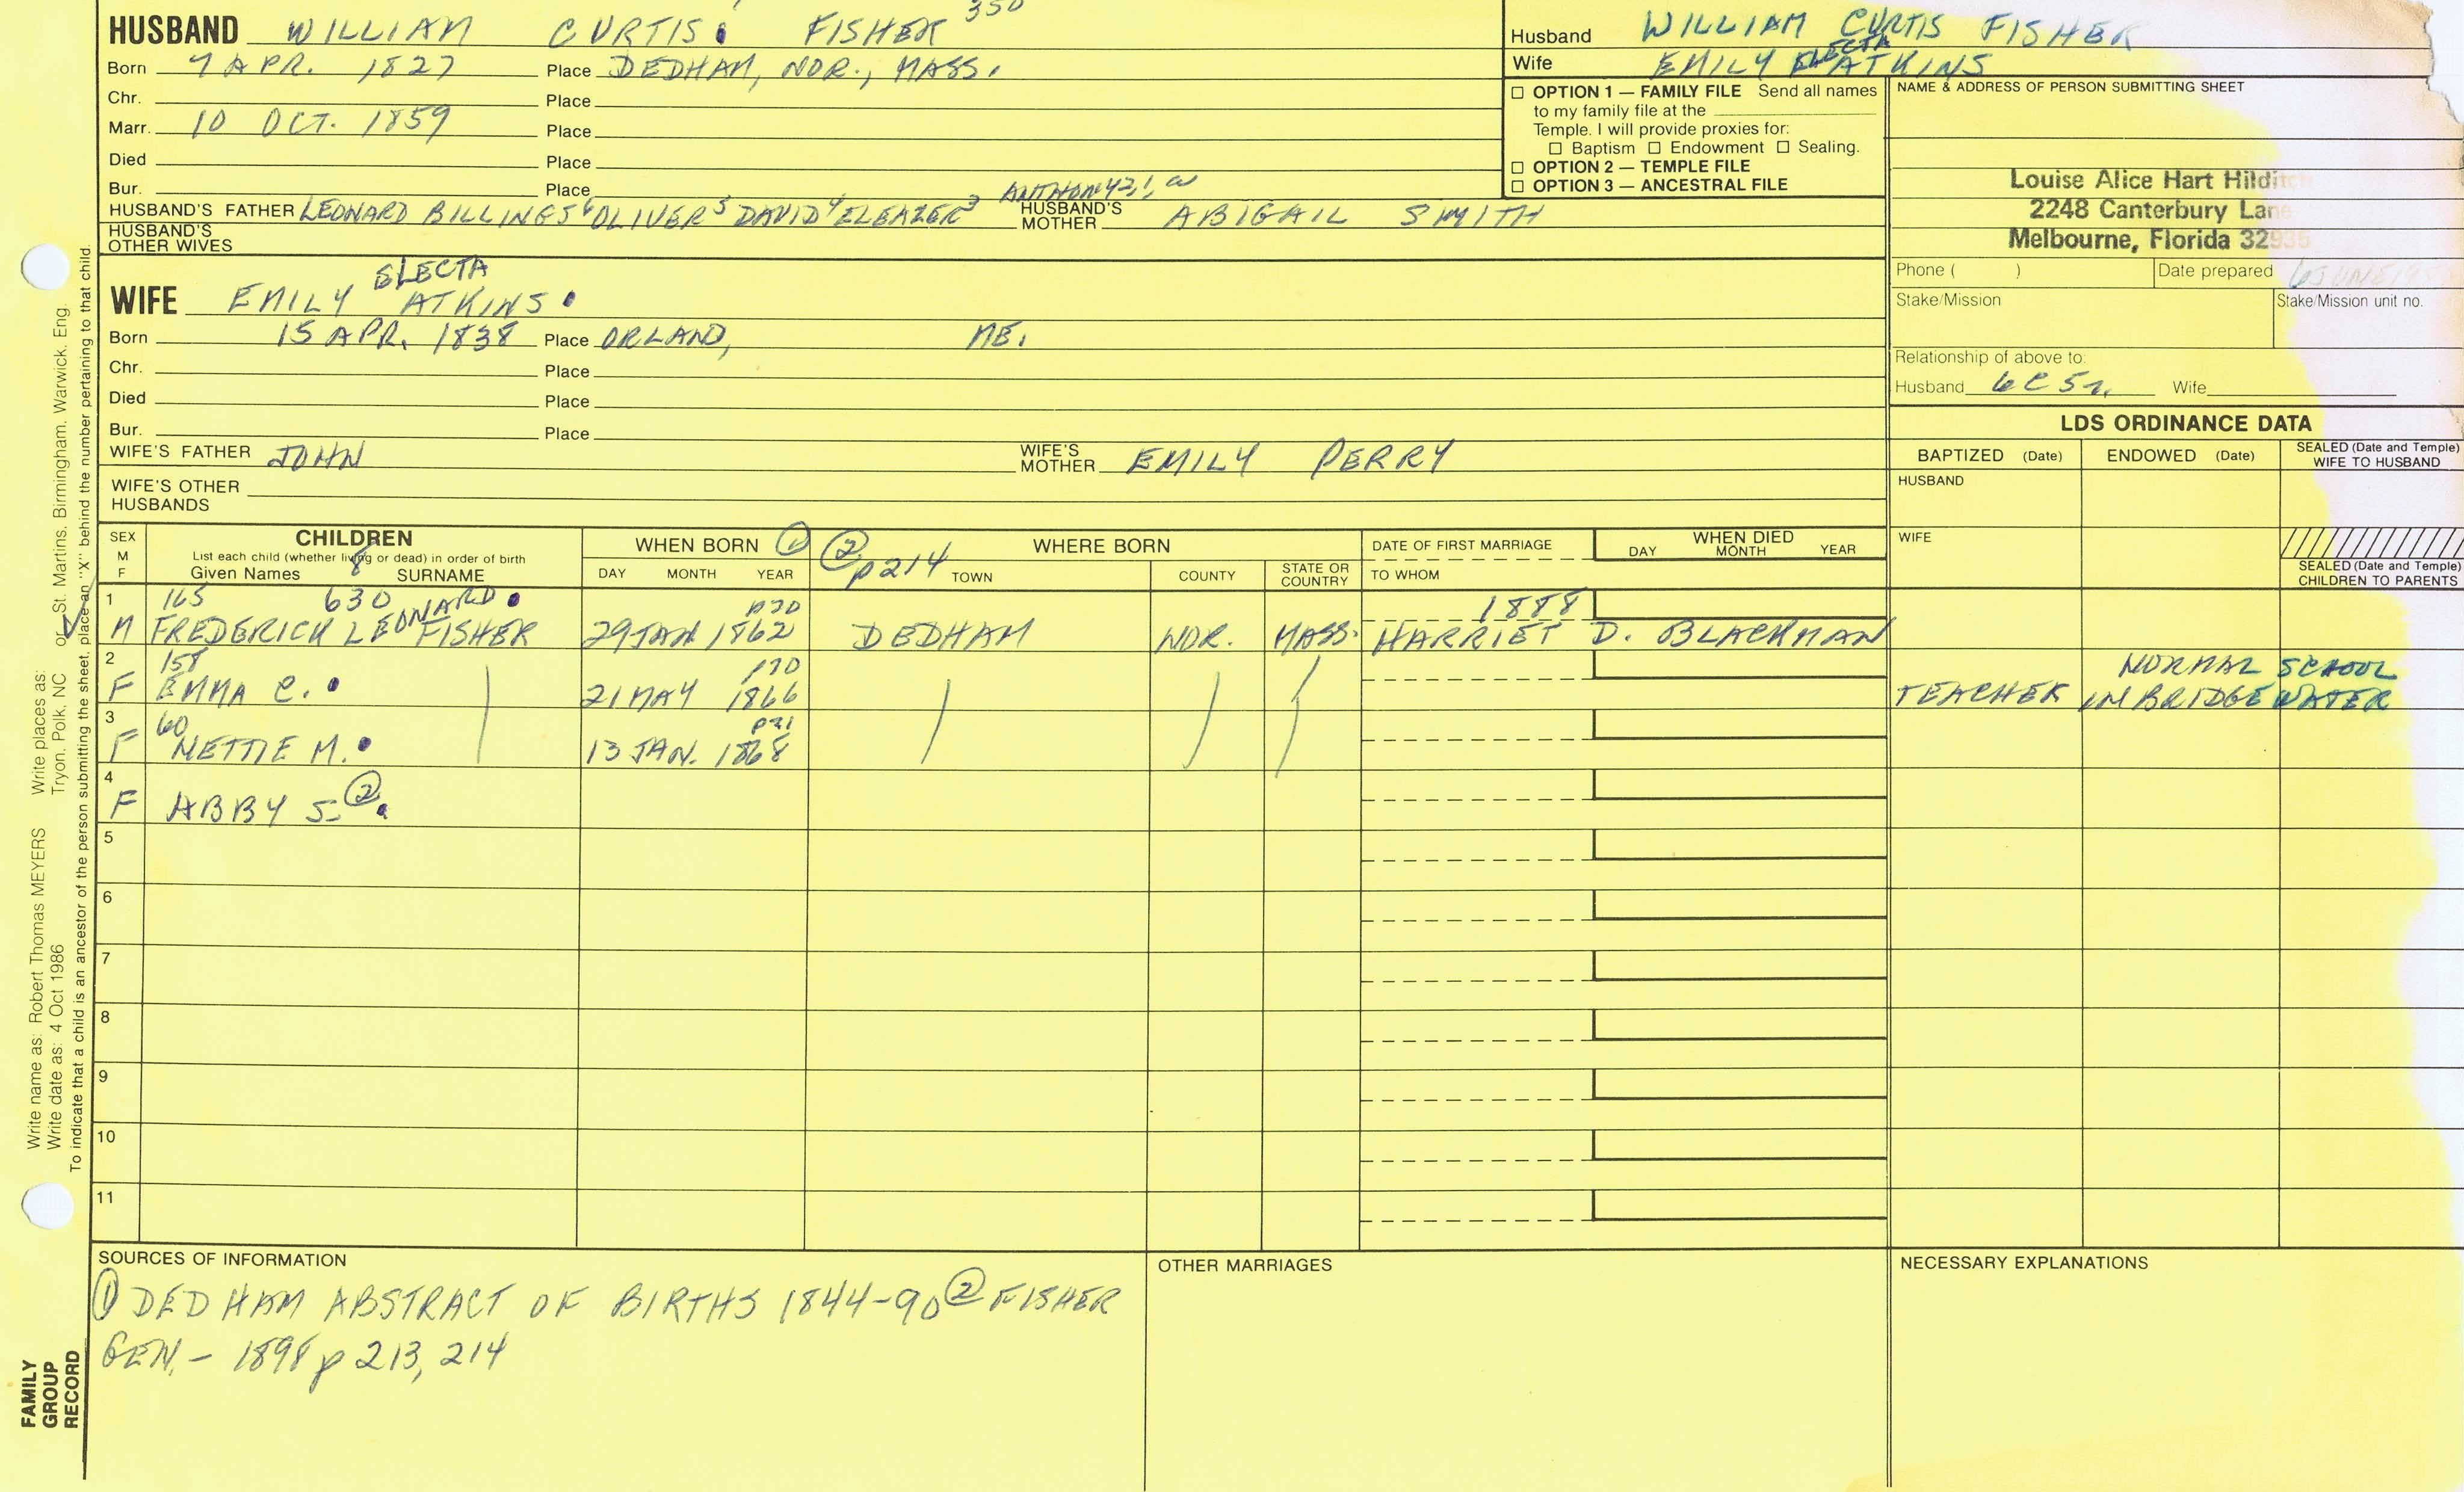 HUSBAND WILLIAM CURTIS FISHER 350
Born 7 APR. 1827 Place DEDHAM, NOR., MASS.
Chr. Place
Marr. 10 OCT. 1859 Place
Died Place
Bur. Place
ANTHONY 2,1,
HUSBAND'S FATHER LEONARD BILLINGS 6 OLIVER 5 DAVID 4 ELEAZER 3 HUSBAND'S MOTHER ABIGAIL SMITH
HUSBAND'S OTHER WIVES
ELECTA
WIFE EMILY ATKINS
Born 15 APR. 1838 Place ORLAND, ME.
Chr. Place
Died Place
Bur. Place
WIFE'S FATHER JOHN WIFE'S MOTHER EMILY PERRY
WIFE'S OTHER HUSBANDS
Husband WILLIAM CURTIS FISHER
ELECTA
Wife EMILY ATKINS
☐ OPTION 1 — FAMILY FILE Send all names
to my family file at the
Temple. I will provide proxies for:
☐ Baptism ☐ Endowment ☐ Sealing.
☐ OPTION 2 — TEMPLE FILE
☐ OPTION 3 — ANCESTRAL FILE
NAME & ADDRESS OF PERSON SUBMITTING SHEET
Louise Alice Hart Hilditch
2248 Canterbury Lane
Melbourne, Florida 32935
Phone ( ) Date prepared
Stake/Mission Stake/Mission unit no.
Relationship of above to:
Husband 6C5r. Wife
LDS ORDINANCE DATA
BAPTIZED (Date) ENDOWED (Date) SEALED (Date and Temple) WIFE TO HUSBAND
HUSBAND
WIFE
SEALED (Date and Temple) CHILDREN TO PARENTS
SEX M F
CHILDREN
List each child (whether living or dead) in order of birth
8
Given Names SURNAME
WHEN BORN ①
DAY MONTH YEAR
② p214 WHERE BORN
TOWN COUNTY STATE OR COUNTRY
DATE OF FIRST MARRIAGE
TO WHOM
WHEN DIED
DAY MONTH YEAR
1 165 630 p20 1888
M FREDERICK LEONARD FISHER 29 JAN 1862 DEDHAM NOR. MASS. HARRIET D. BLACKMAN
2 158 NORMAL SCHOOL
F EMMA C. 21 MAY 1866 TEACHER IN BRIDGEWATER
3 60 p31
F NETTIE M. 13 JAN. 1868
4
F ABBY S ②
5
6
7
8
9
10
11
SOURCES OF INFORMATION
① DEDHAM ABSTRACT OF BIRTHS 1844-90 ② FISHER
GEN. - 1898 p 213, 214
OTHER MARRIAGES
NECESSARY EXPLANATIONS
Write name as: Robert Thomas MEYERS
Write date as: 4 Oct 1986
Write places as: Tryon, Polk, NC
or St. Martins, Birmingham, Warwick, Eng.
To indicate that a child is an ancestor of the person submitting the sheet, place an "X" behind the number pertaining to that child.
FAMILY
GROUP
RECORD